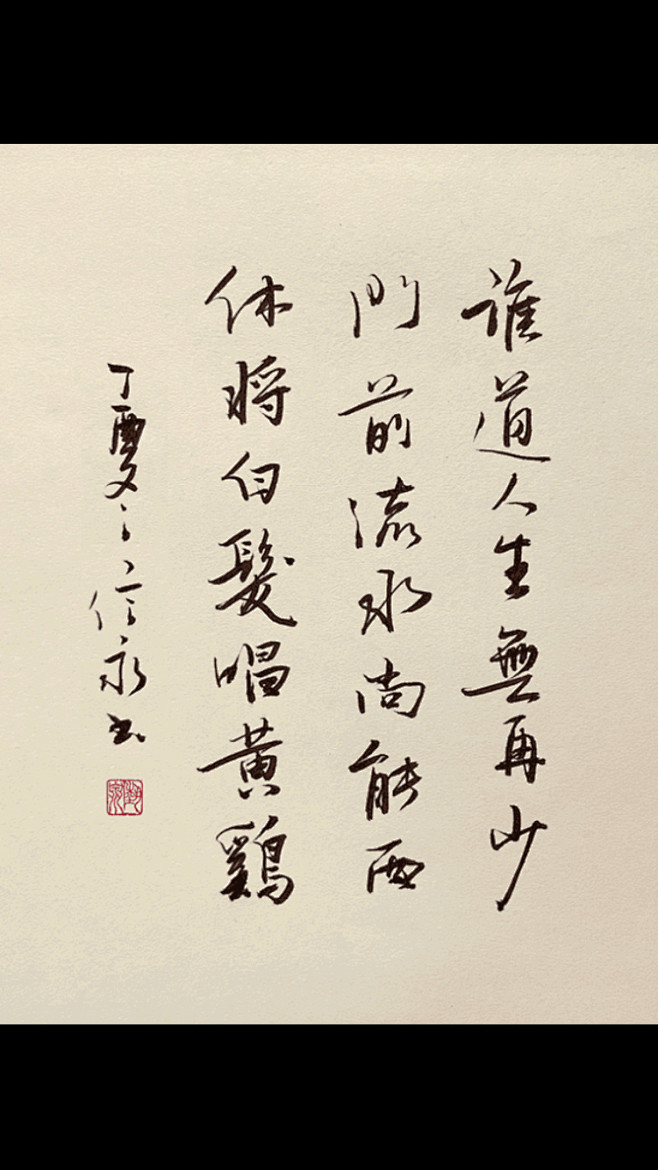 誰道人生無再少
門前流水尚能西
休將白髮唱黄鷄
丁酉冬信永书